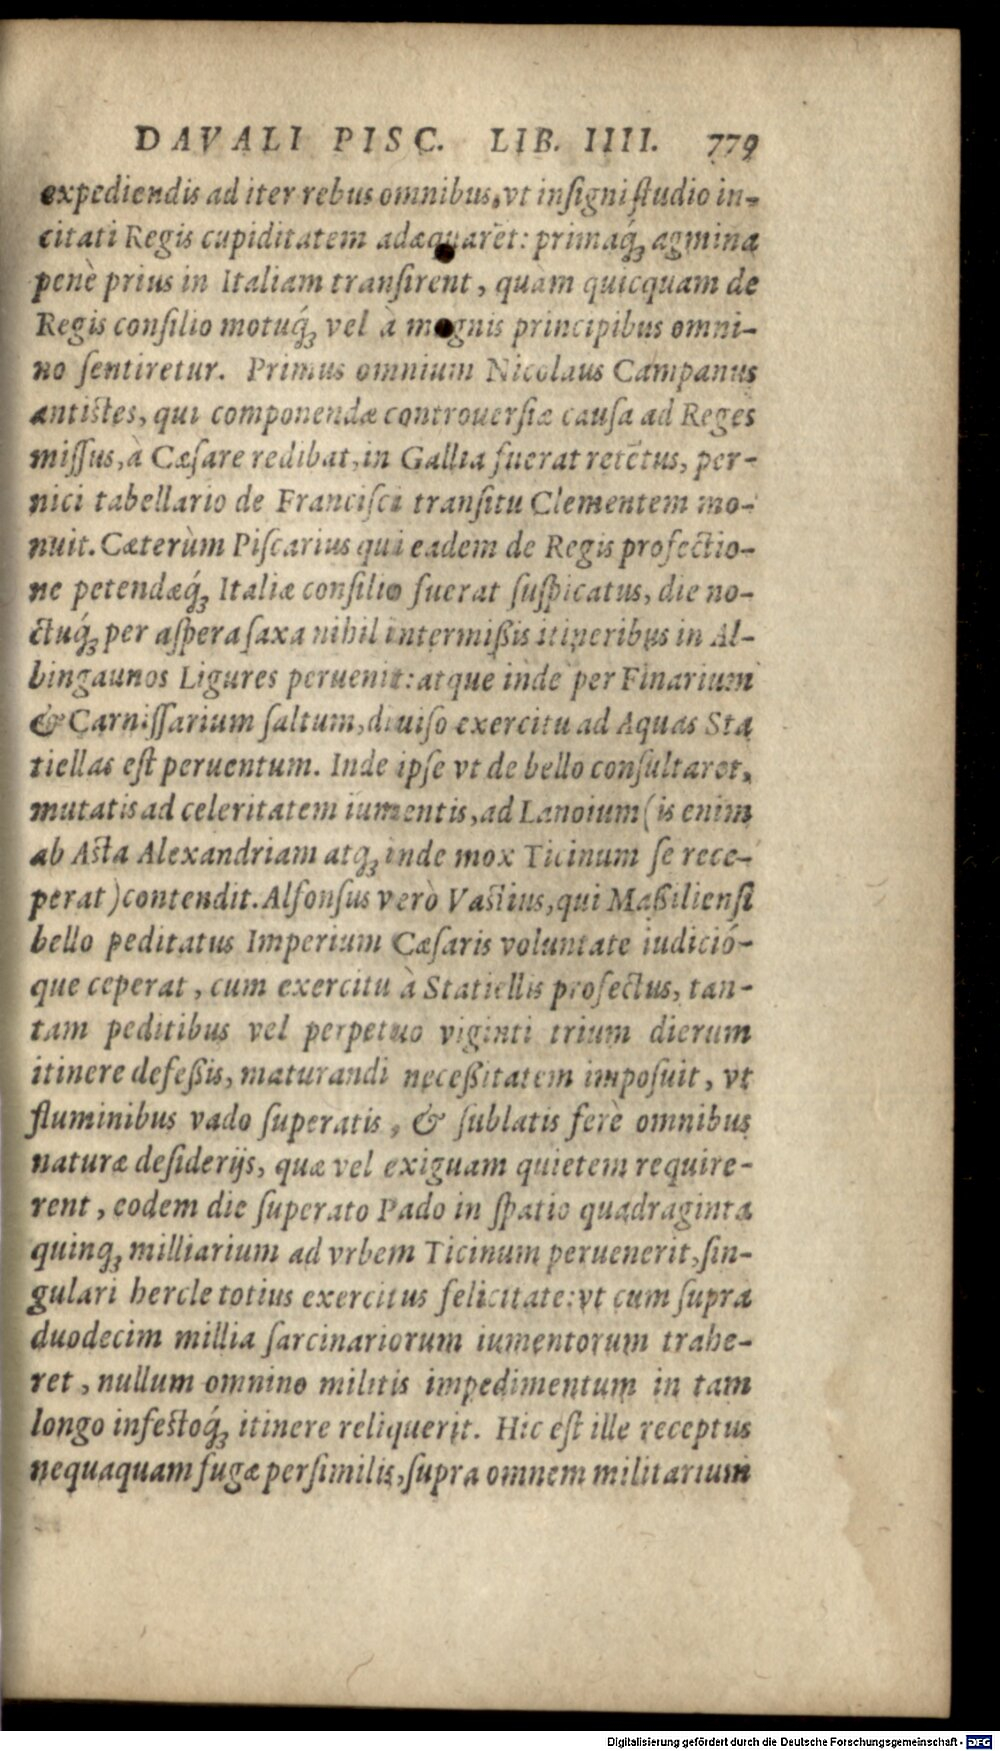 DAVALI PISC. LIB. IIII. 779
expediendis ad iter rebus omnibus, vt insigni studio in-
citati Regis cupiditatem adæquarēt: primaq́; agmina
penè prius in Italiam transirent, quàm quicquam de
Regis consilio motuq́; vel à magnis principibus omni-
no sentiretur. Primus omnium Nicolaus Campanus
antistes, qui componendæ controuersiæ causa ad Reges
missus, à Cæsare redibat, in Gallia fuerat retētus, per-
nici tabellario de Francisci transitu Clementem mo-
nuit. Cæterùm Piscarius qui eadem de Regis profectio-
ne petendæq́; Italiæ consilio fuerat suspicatus, die no-
ctuq́; per aspera saxa nihil intermißis itineribus in Al-
bingaunos Ligures peruenit: atque inde per Finarium
& Carnissarium saltum, diuiso exercitu ad Aquas Sta
tiellas est peruentum. Inde ipse vt de bello consultaret,
mutatis ad celeritatem iumentis, ad Lanoium (is enim
ab Asta Alexandriam atq; inde mox Ticinum se rece-
perat) contendit. Alfonsus verò Vastius, qui Maßiliensi
bello peditatus Imperium Cæsaris voluntate iudició-
que ceperat, cum exercitu à Statiellis profectus, tan-
tam peditibus vel perpetuo viginti trium dierum
itinere defeßis, maturandi neceßitatem imposuit, vt
fluminibus vado superatis, & sublatis ferè omnibus
naturæ desiderijs, quæ vel exiguam quietem require-
rent, eodem die superato Pado in spatio quadraginta
quinq; milliarium ad vrbem Ticinum peruenerit, sin-
gulari hercle totius exercitus felicitate: vt cum supra
duodecim millia sarcinariorum iumentorum trahe-
ret, nullum omnino militis impedimentum in tam
longo infectoq́; itinere reliquerit. Hic est ille receptus
nequaquam fugæ persimilis, supra omnem militarium
Digitalisierung gefördert durch die Deutsche Forschungsgemeinschaft - DFG